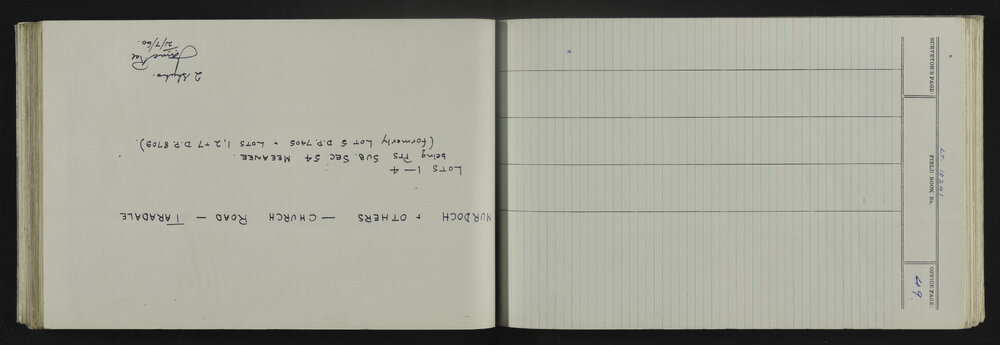 MURDOCH + OTHERS — CHURCH ROAD — TARADALE
LOTS 1—4
being Pts SUB. SEC 54 MEEANEE.
(formerly LOT 5 D.P. 7405 + LOTS 1, 2 + 7 D.P. 8709).
21/7/60.
SURVEYOR'S PAGE
FIELD BOOK No.
OFFICE PAGE.
49.